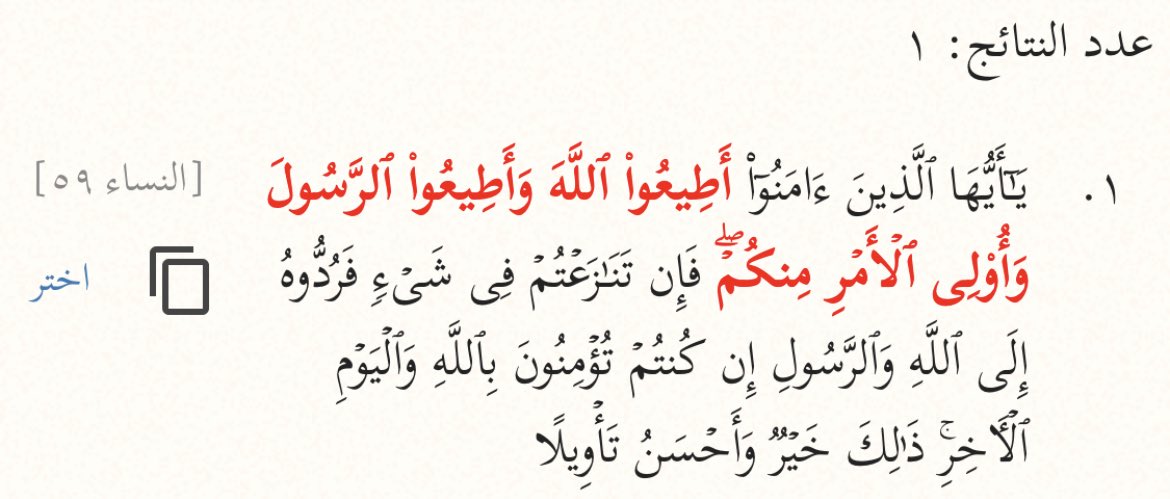 عدد النتائج: ١
١. يَـٰٓأَيُّهَا ٱلَّذِينَ ءَامَنُوٓا۟ أَطِيعُوا۟ ٱللَّهَ وَأَطِيعُوا۟ ٱلرَّسُولَ [النساء ٥٩]
وَأُو۟لِى ٱلْأَمْرِ مِنكُمْۖ فَإِن تَنَـٰزَعْتُمْ فِى شَىْءٍ فَرُدُّوهُ اختر
إِلَى ٱللَّهِ وَٱلرَّسُولِ إِن كُنتُمْ تُؤْمِنُونَ بِٱللَّهِ وَٱلْيَوْمِ
ٱلْـَٔاخِرِۚ ذَٰلِكَ خَيْرٌ وَأَحْسَنُ تَأْوِيلًا